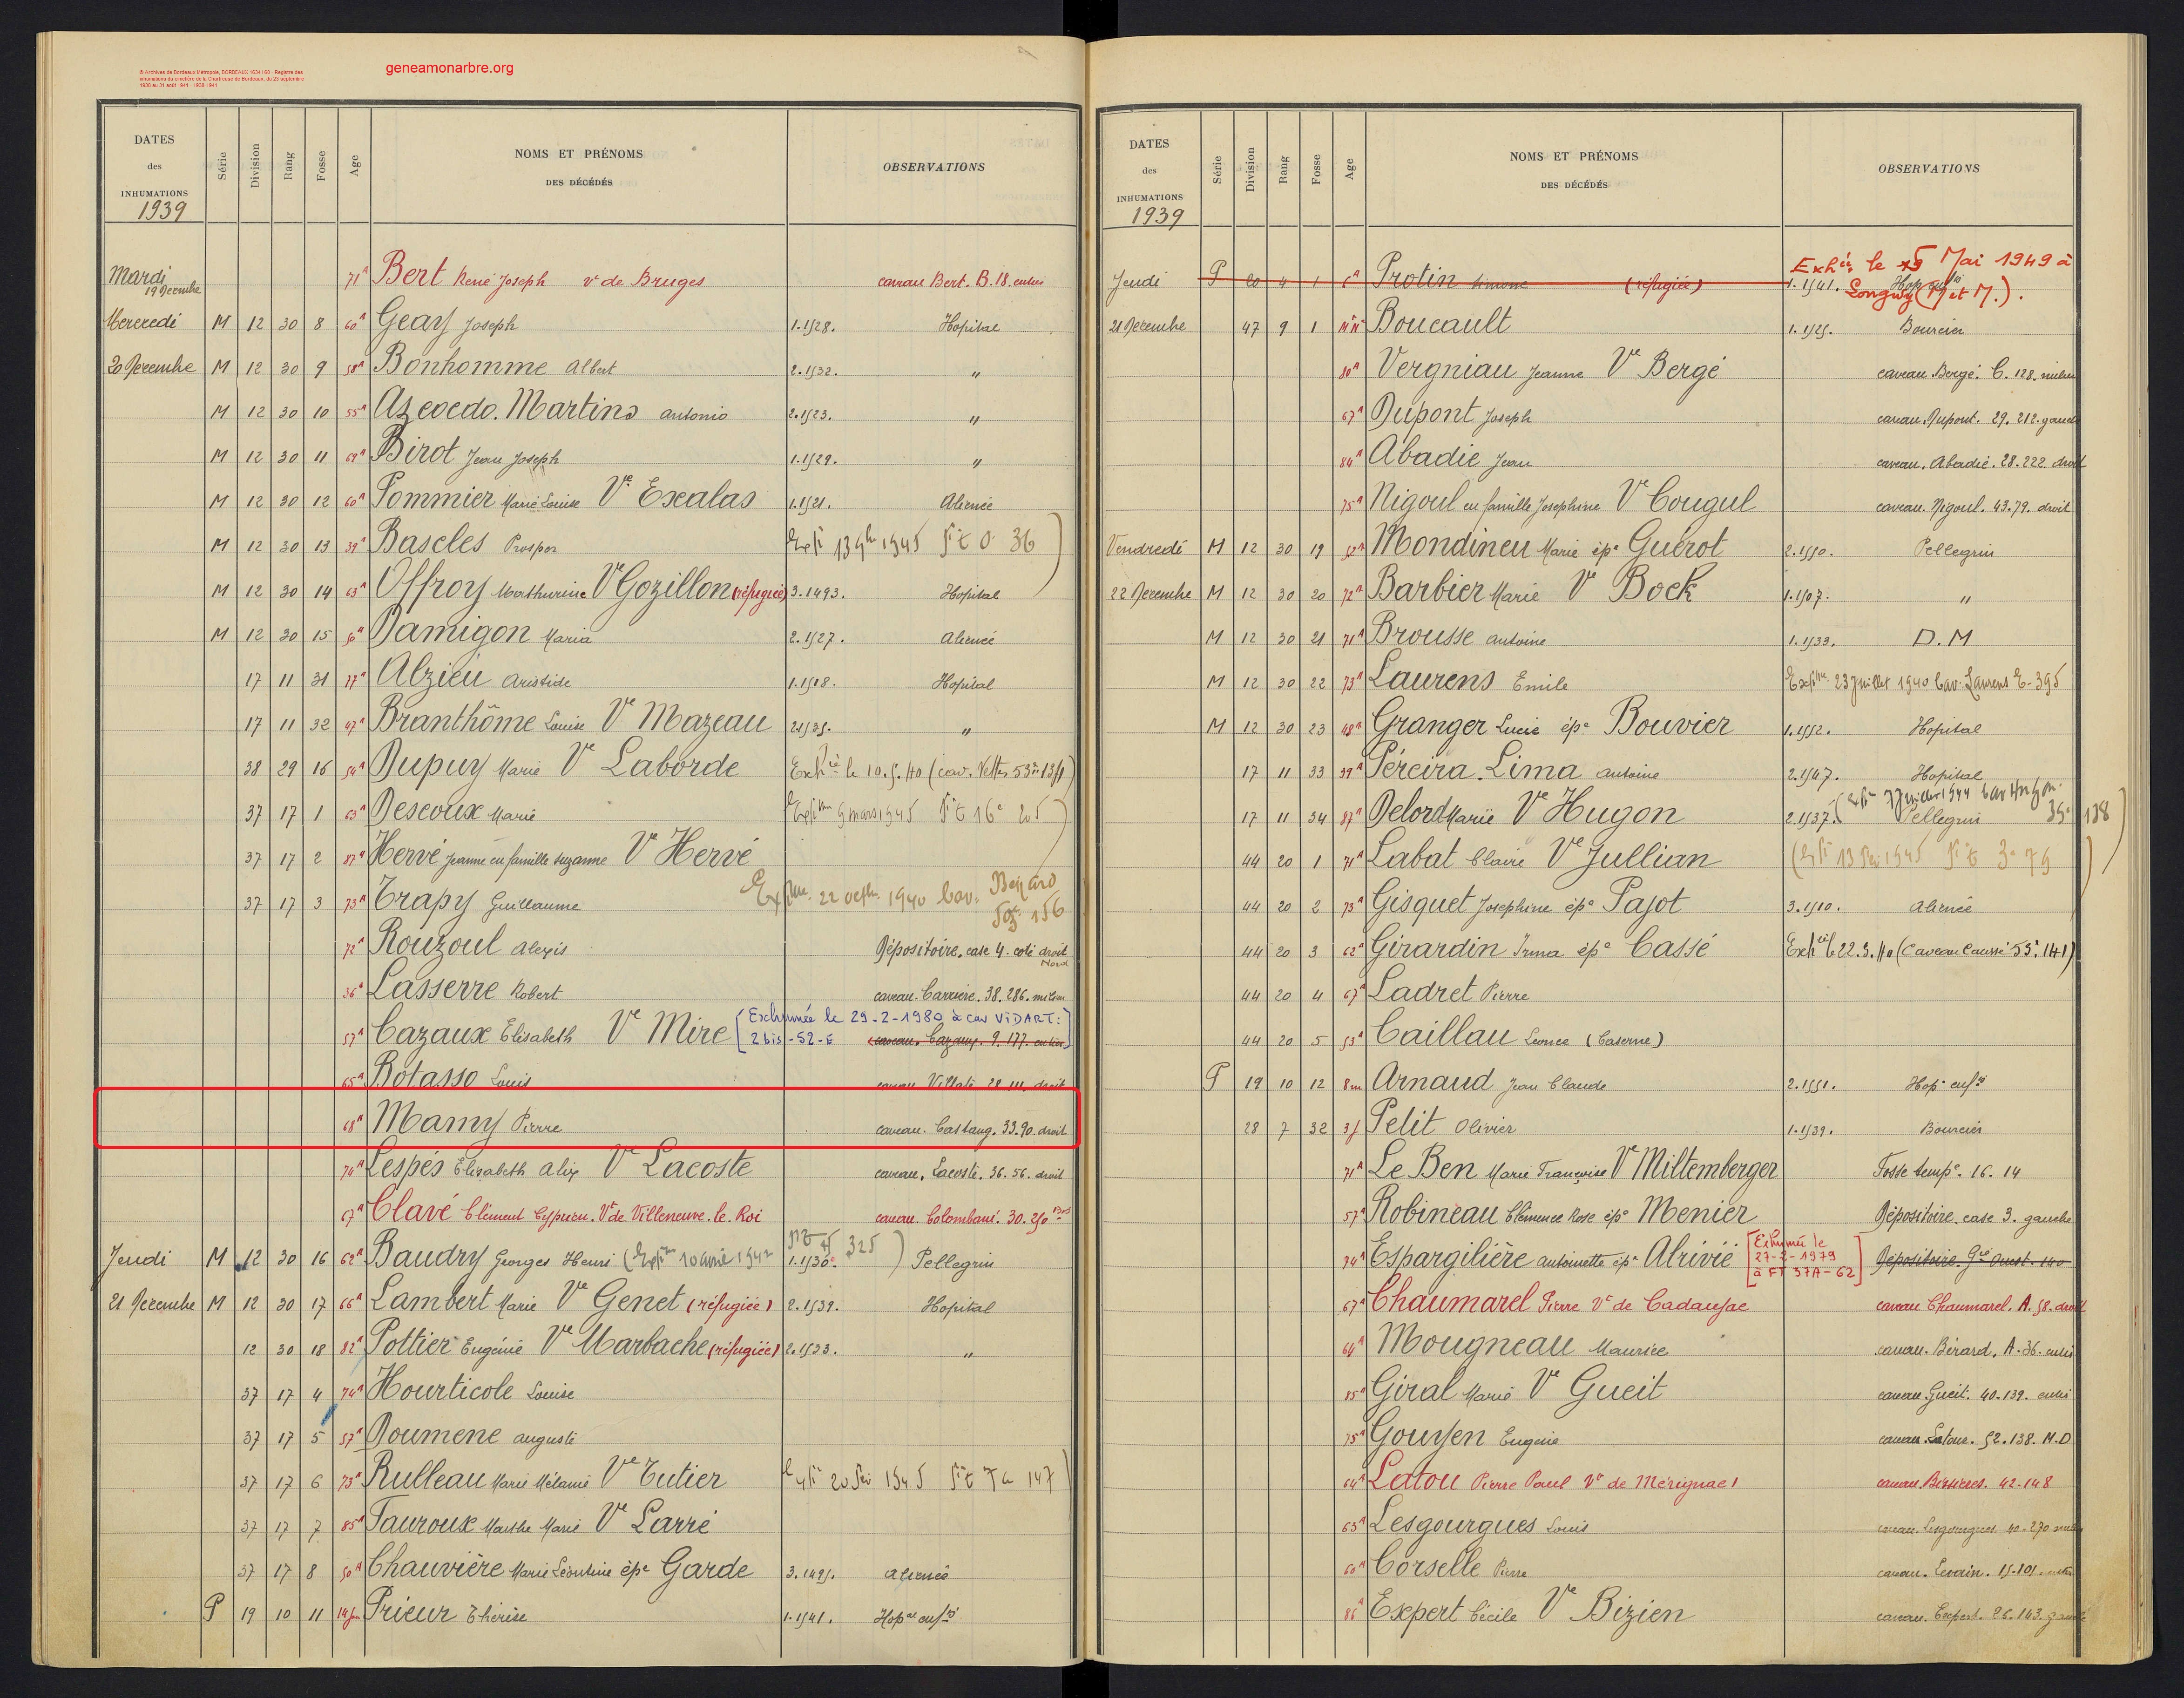 © Archives de Bordeaux Métropole, BORDEAUX 1634 I 60 - Registre des
inhumations du cimetière de la Chartreuse de Bordeaux, du 23 septembre
1938 au 31 août 1941 - 1938-1941
geneamonarbre.org
DATES des INHUMATIONS Série Division Rang Fosse Age NOMS ET PRÉNOMS DES DÉCÉDÉS OBSERVATIONS
1939
Mardi 19 Décembre 71a Bert René Joseph vt de Bruges caveau Bert. B. 18. entier
Mercredi M 12 30 8 60a Geay Joseph 1.1528. Hopital
20 Décembre M 12 30 9 58a Bonhomme Albert 2.1532. "
M 12 30 10 55a Azevedo. Martins Antonio 2.1523. "
M 12 30 11 69a Birot Jean Joseph 1.1529. "
M 12 30 12 60a Pommier Marie Louise Ve Escalas 1.1521. Aliénée
M 12 30 13 39a Bascles Prosper 1945 36
M 12 30 14 63a Offroy Mathurine Ve Gozillon (réfugiée) 3.1493. Hopital
M 12 30 15 Damigon Maria 2.1527. Aliénée
17 11 31 17a Alzieu Aristide 1.1518. Hopital
17 11 32 47a Branthôme Louise Ve Mazeau "
38 29 16 54a Dupuy Marie Ve Laborde Exhée le 10.5.40
37 17 1 63a Descoux Marie 9 mars 1945
37 17 2 87a Hervé Jeanne en famille Suzanne Ve Hervé
37 17 3 73a Trapy Guillaume 22 octbre 1940 Cav. 156
72a Rouzoul Alexis Dépositoire. case 4. coté droit Nord
36a Lasserre Robert caveau. Carrière. 38. 286. milieu
57a Cazaux Elisabeth Ve Mire [Exhumée le 29-2-1980 à cav VIDART:
2 bis - 52-E] caveau. Cazaux. 9. 177. entier
65a Botasso Louis caveau droit
68a Mamy Pierre caveau. Castaing. 33.90. droit
74a Lespés Elisabeth Alix Ve Lacoste caveau. Lacoste. 36. 56. droit
67a Clavé Clément Cyprien. Vt de Villeneuve. le. Roi caveau. Colombani. 30. 250
Jeudi M 12 30 16 62a Baudry Georges Henri 1942 325 1.1536. Pellegrin
21 Décembre M 12 30 17 66a Lambert Marie Ve Genet (réfugiée) 2.1539. Hopital
12 30 18 82a Pottier Eugénie Ve Marbache (réfugiée) 2.1533. "
37 17 4 74a Hourticole Louise
37 17 5 57a Doumene Auguste
37 17 6 73a Rulleau Marie Mélanie Ve Tutier 1945 147
37 17 7 85a Tauroux Marthe Marie Ve Larré
37 17 8 50a Chauvière Marie Léontine épe Garde 3.1495. Aliénée
P 19 10 11 Prieur Thérèse 1.1541. Hopal enfts
DATES des INHUMATIONS Série Division Rang Fosse Age NOMS ET PRÉNOMS DES DÉCÉDÉS OBSERVATIONS
1939
Exhée le Mai 1949 à
Jeudi P 20 4 1 6a Protin Simone (réfugiée) 1.1541. Longwy (M et M.).
21 Décembre 47 9 1 Boucault 1.1525. Bourcier
80a Vergniau Jeanne Ve Bergé caveau Bergé. C. 128. milieu
67a Dupont Joseph caveau. Dupont. 29. 212. gauche
84a Abadie Jean caveau. Abadie. 28. 222. droit
75a Nigoul en famille Josephine Ve Cougul caveau. Nigoul. 43.79. droit
Vendredi M 12 30 19 Mondineu Marie épe Guérot 2.1550. Pellegrin
22 Décembre M 12 30 20 72a Barbier Marie Ve Bock 1.1507. "
M 12 30 21 71a Brousse Antoine 1.1533. D.M
M 12 30 22 73a Laurens Emile 23 Juillet 1940 Cav. Laurens E-395
M 12 30 23 48a Granger Lucie épe Bouvier 1.1552. Hopital
17 11 33 39a Péreira. Lima Antoine 2.1547. Hopital
17 11 34 87a Delord Marie Ve Hugon 2.1537. Pellegrin 1944 138
44 20 1 71a Labat Claire Ve Jullian 1945
44 20 2 73a Gisquet Josephine épe Pajot 3.1510. Aliénée
44 20 3 62a Girardin Irma épe Cassé Exhée le 22.3.40 (Caveau Caussé 55. 141)
44 20 4 67a Ladret Pierre
44 20 5 53a Caillau Léonce (Caserne)
P 19 10 12 8m Arnaud Jean Claude 2.1551. Hopal enfts
28 7 32 3j Petit Olivier 1.1539. Bourcier
71a Le Ben Marie Françoise Ve Miltemberger Fosse tempe. 16. 14
57a Robineau Clémence Rose épe Menier Dépositoire. case 3. gauche
74a Espargilière Antoinette épe Alrivié [Exhumée le
27-2-1979
à FT 37A-62] Dépositoire. Gie Ouest. 140
67a Chaumarel Pierre Vt de Cadaujac caveau Chaumarel. A. 58. droit
64a Mougneau Maurice caveau. Bérard. A. 36. entier
85a Giral Marie Ve Gueit caveau. Gueit. 40.139. entier
75a Gouyen Eugénie caveau. Latour. 52.138. M.D
64a Latou Pierre Paul Vt de Mérignac caveau. Bessières. 42-148
63a Lesgourgues Louis caveau. Lesgourgues. 40.270
60a Corselle Pierre caveau. 15.101.
86a Expert Cécile Ve Bizien caveau. Expert. 26.143. gauche